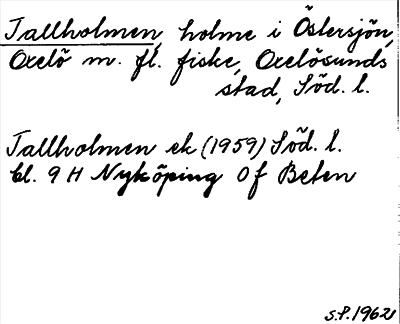 Tallholmen, holme i Östersjön,
Oxelö m. fl. fiske, Oxelösunds
stad, Söd. l.
Tallholmen ek (1959) Söd. l.
bl. 9 H Nyköping 0 f Beten
S.P. 1962